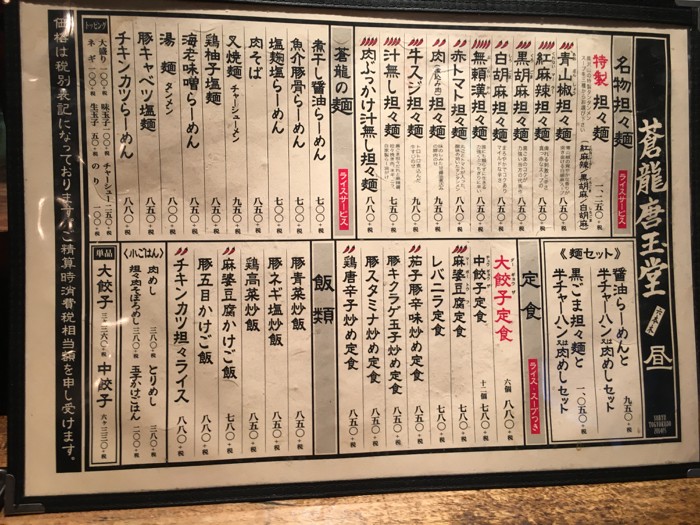 蒼龍唐玉堂
昼
TOKYO
TOGYOKUDO
名物担々麺
ライスサービス
特製担々麺 一、一二五〇+税
紅麻辣/黒胡麻/白胡麻
青山椒担々麺 八五〇+税
紅麻辣担々麺 八五〇+税
黒胡麻担々麺 八五〇+税
白胡麻担々麺 八五〇+税
無頼漢担々麺
赤トマト担々麺
肉担々麺
牛スジ担々麺 九五〇+税
汁無し担々麺 七五〇+税
肉ぶっかけ汁無し担々麺 八八〇+税
蒼龍の麺
ライスサービス
煮干し醤油らーめん 七〇〇+税
魚介豚骨らーめん 七〇〇+税
塩麹塩らーめん 七〇〇+税
肉そば 八五〇+税
叉焼麺 チャーシューメン 九五〇+税
鶏柚子塩麺 八五〇+税
海老味噌らーめん 八五〇+税
湯麺 タンメン 八〇〇+税
豚キャベツ塩麺 八五〇+税
チキンカツらーめん 八八〇+税
トッピング
大盛り 一〇〇+税 味玉子 一〇〇+税 チャーシュー 二五〇+税
ネギ 一〇〇+税 生玉子 五〇+税 のり 一〇〇+税
《麺セット》
醤油らーめんと
半チャーハン又は肉めしセット 九五〇+税
黒ごま担々麺と
半チャーハン又は肉めしセット 一、〇五〇+税
定食
ライス・スープつき
大餃子定食 六個 八八〇+税
中餃子定食 十二個 八七〇+税
レバニラ定食 八七〇+税
麻婆豆腐定食 七八〇+税
茄子豚辛味炒め定食 八五〇+税
豚キクラゲ玉子炒め定食 八五〇+税
豚スタミナ炒め定食 八五〇+税
鶏唐辛子炒め定食 八五〇+税
飯類
豚青菜炒飯 八五〇+税
豚ネギ塩炒飯 八五〇+税
鶏高菜炒飯 八五〇+税
麻婆豆腐かけご飯 七八〇+税
豚五目かけご飯 八八〇+税
チキンカツ担々ライス 八八〇+税
《小ごはん》
肉めし 三八〇+税 とりめし 三八〇+税
担々肉そぼろめし 三八〇+税 玉子かけごはん 二〇〇+税
単品
大餃子 三ヶ三六〇+税 中餃子 六ヶ三三〇+税
価格は税別表記になっております。ご精算時消費税相当額を申し受けます。